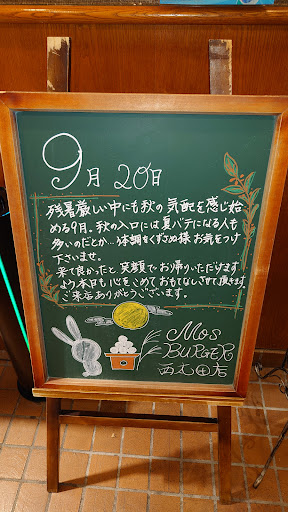 9月20日
残暑厳しい中にも秋の気配を感じ始
める9月。秋の入口には夏バテになる人も
多いのだとか…体調をくずさぬ様お気をつけ
下さいませ。
来て良かったと笑顔でお帰りいただけます
よう本日も心をこめておもてなしさせて頂きます。
ご来店ありがとうございます。
MOS
BURGER